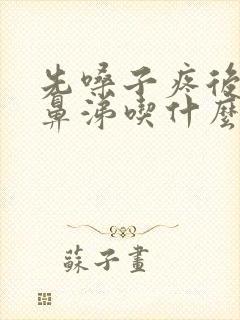 先嗓子疼後
鼻涕喫什麼
蘇子畫